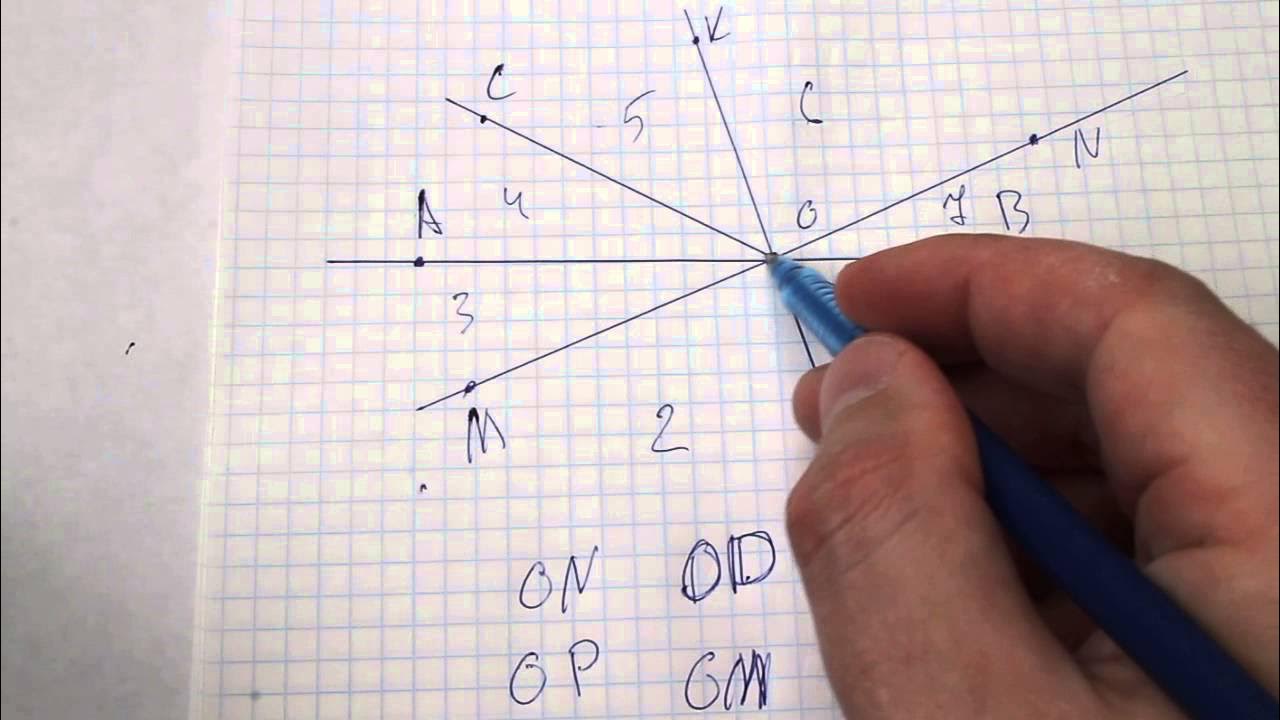 K
C
5
C
N
A
4
O
7 B
3
M
2
ON OD
OP OM